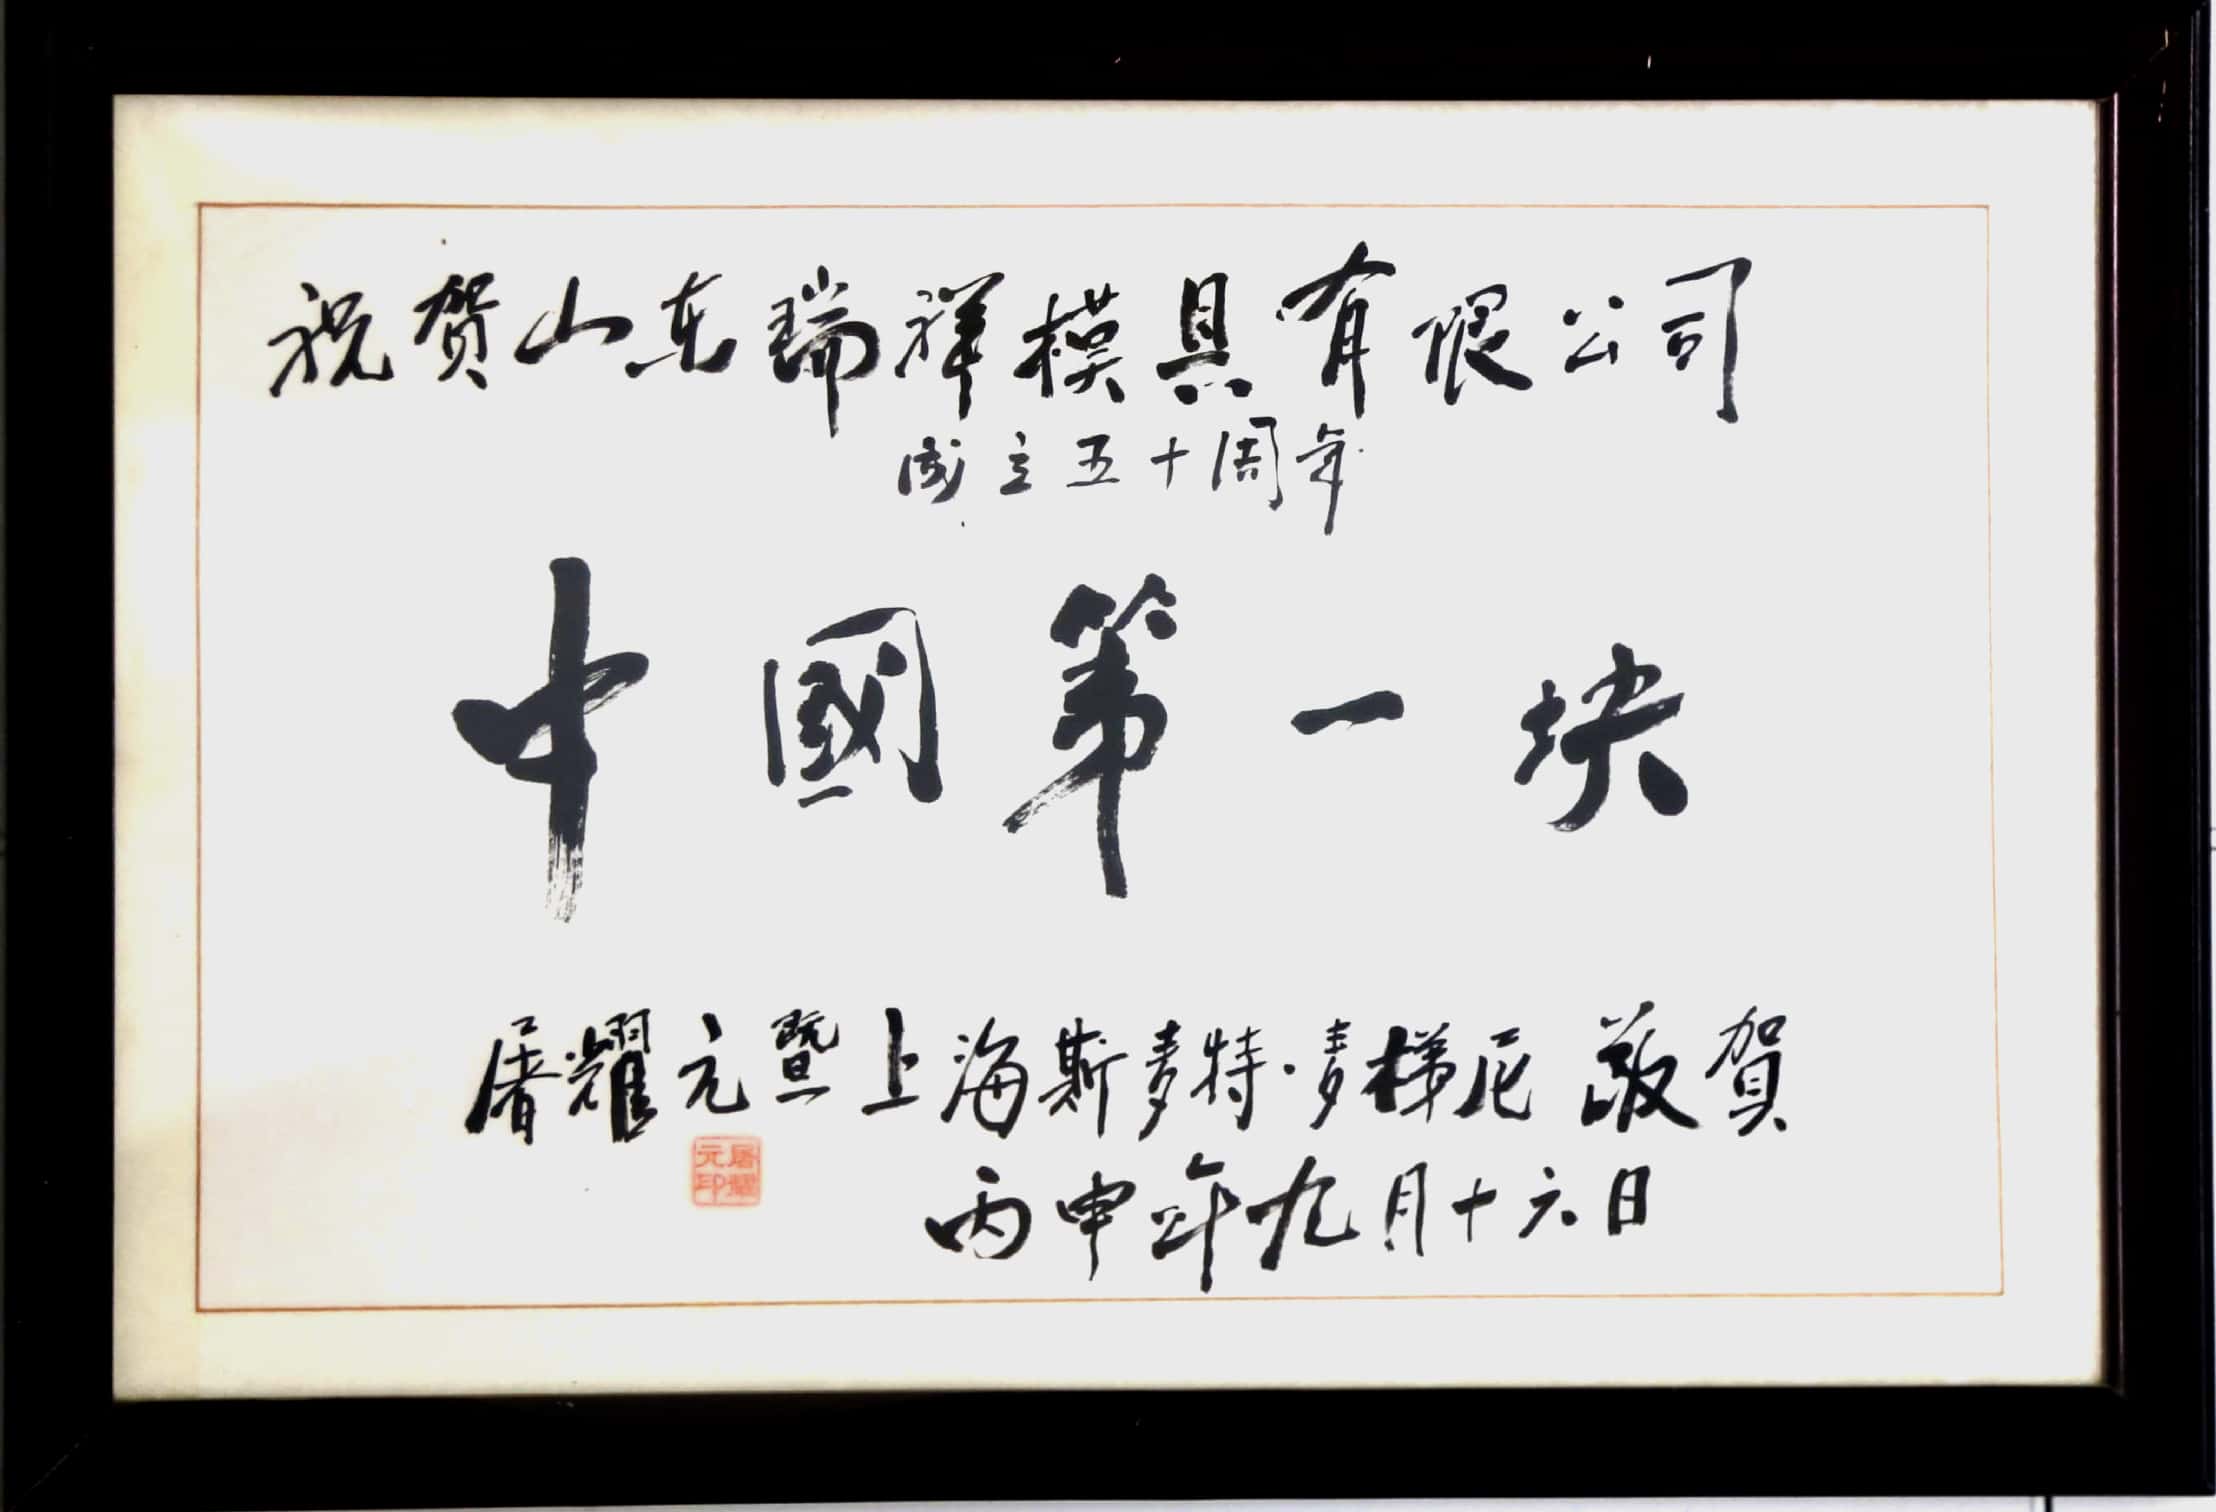 祝贺山东瑞祥模具有限公司
成立五十周年
中國第一块
屠耀元暨上海斯麦特·麦梯尼 敬賀
屠耀元印
丙申年九月十六日